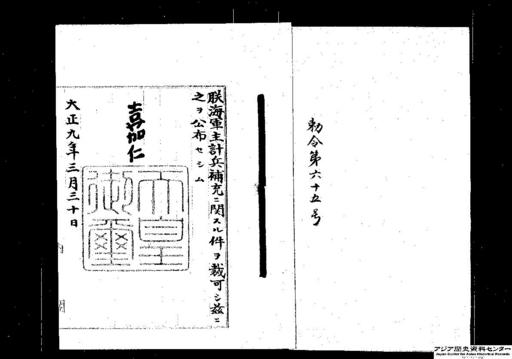 勅令第六十五号
朕海軍主計兵補充ニ関スル件ヲ裁可シ茲ニ
之ヲ公布セシム
嘉仁
天皇御璽
大正九年三月三十日
アジア歴史資料センター
Japan Center for Asian Historical Records